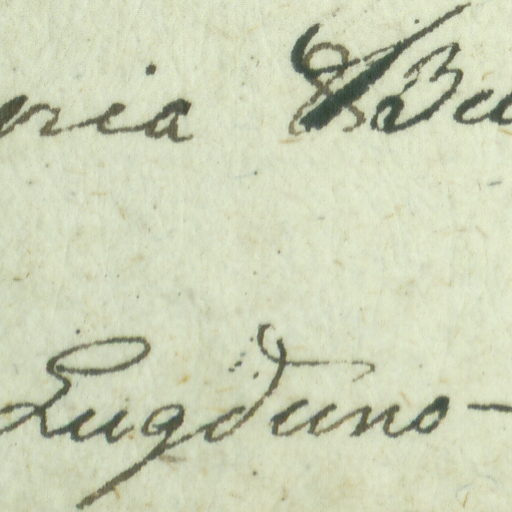 ria & Bu
Lugduno-